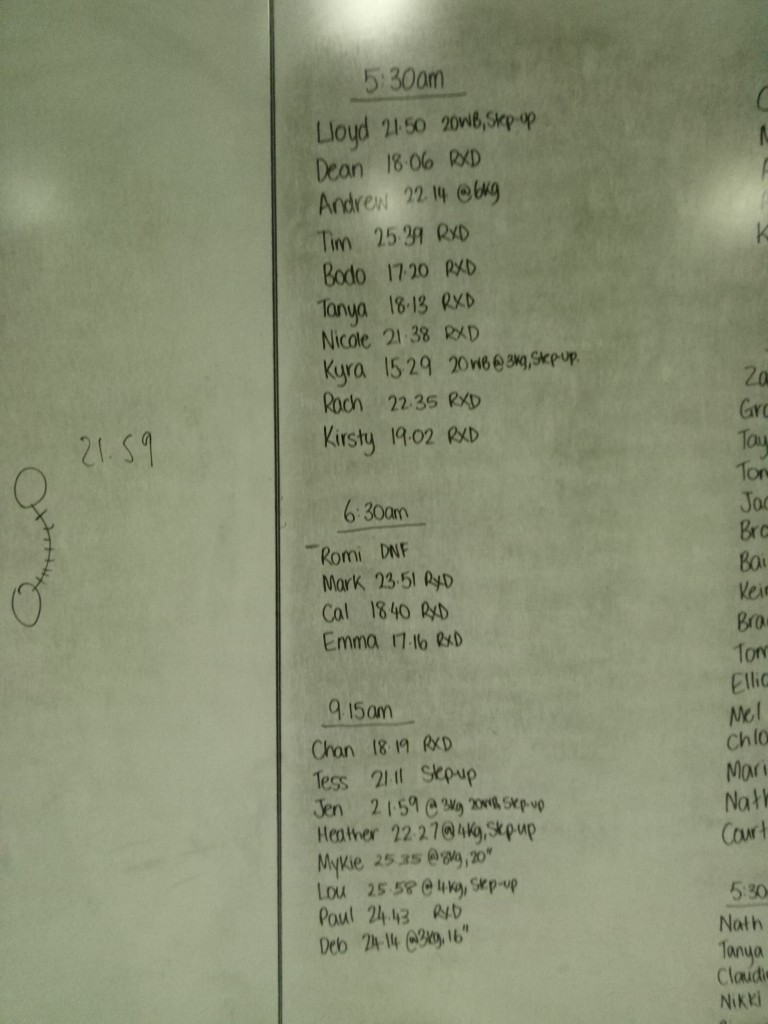 5:30am
Lloyd 21.50 20WB, Step-up
Dean 18.06 RXD
Andrew 22.14 @6kg
Tim 25.39 RXD
Bodo 17.20 RXD
Tanya 18.13 RXD
Nicole 21.38 RXD
Kyra 15.29 20WB@3kg, Step-up.
Rach 22.35 RXD
Kirsty 19.02 RXD
21.59
6:30am
Romi DNF
Mark 23.51 RXD
Cal 18.40 RXD
Emma 17.16 RXD
9.15am
Chan 18.19 RXD
Tess 21.11 Step-up
Jen 21.59 @3kg 20WB, Step-up
Heather 22.27 @4kg, Step-up
Mykie 25.35 @8kg, 20"
Lou 25.58 @4kg, Step-up
Paul 24.43 RXD
Deb 24.14 @3kg, 16"
Za
Gra
Tay
Tom
Jac
Bro
Bai
Keir
Bra
Tom
Ellio
Mel
Chlo
Mari
Nath
Court
5:30
Nath
Tanya
Claudi
Nikki